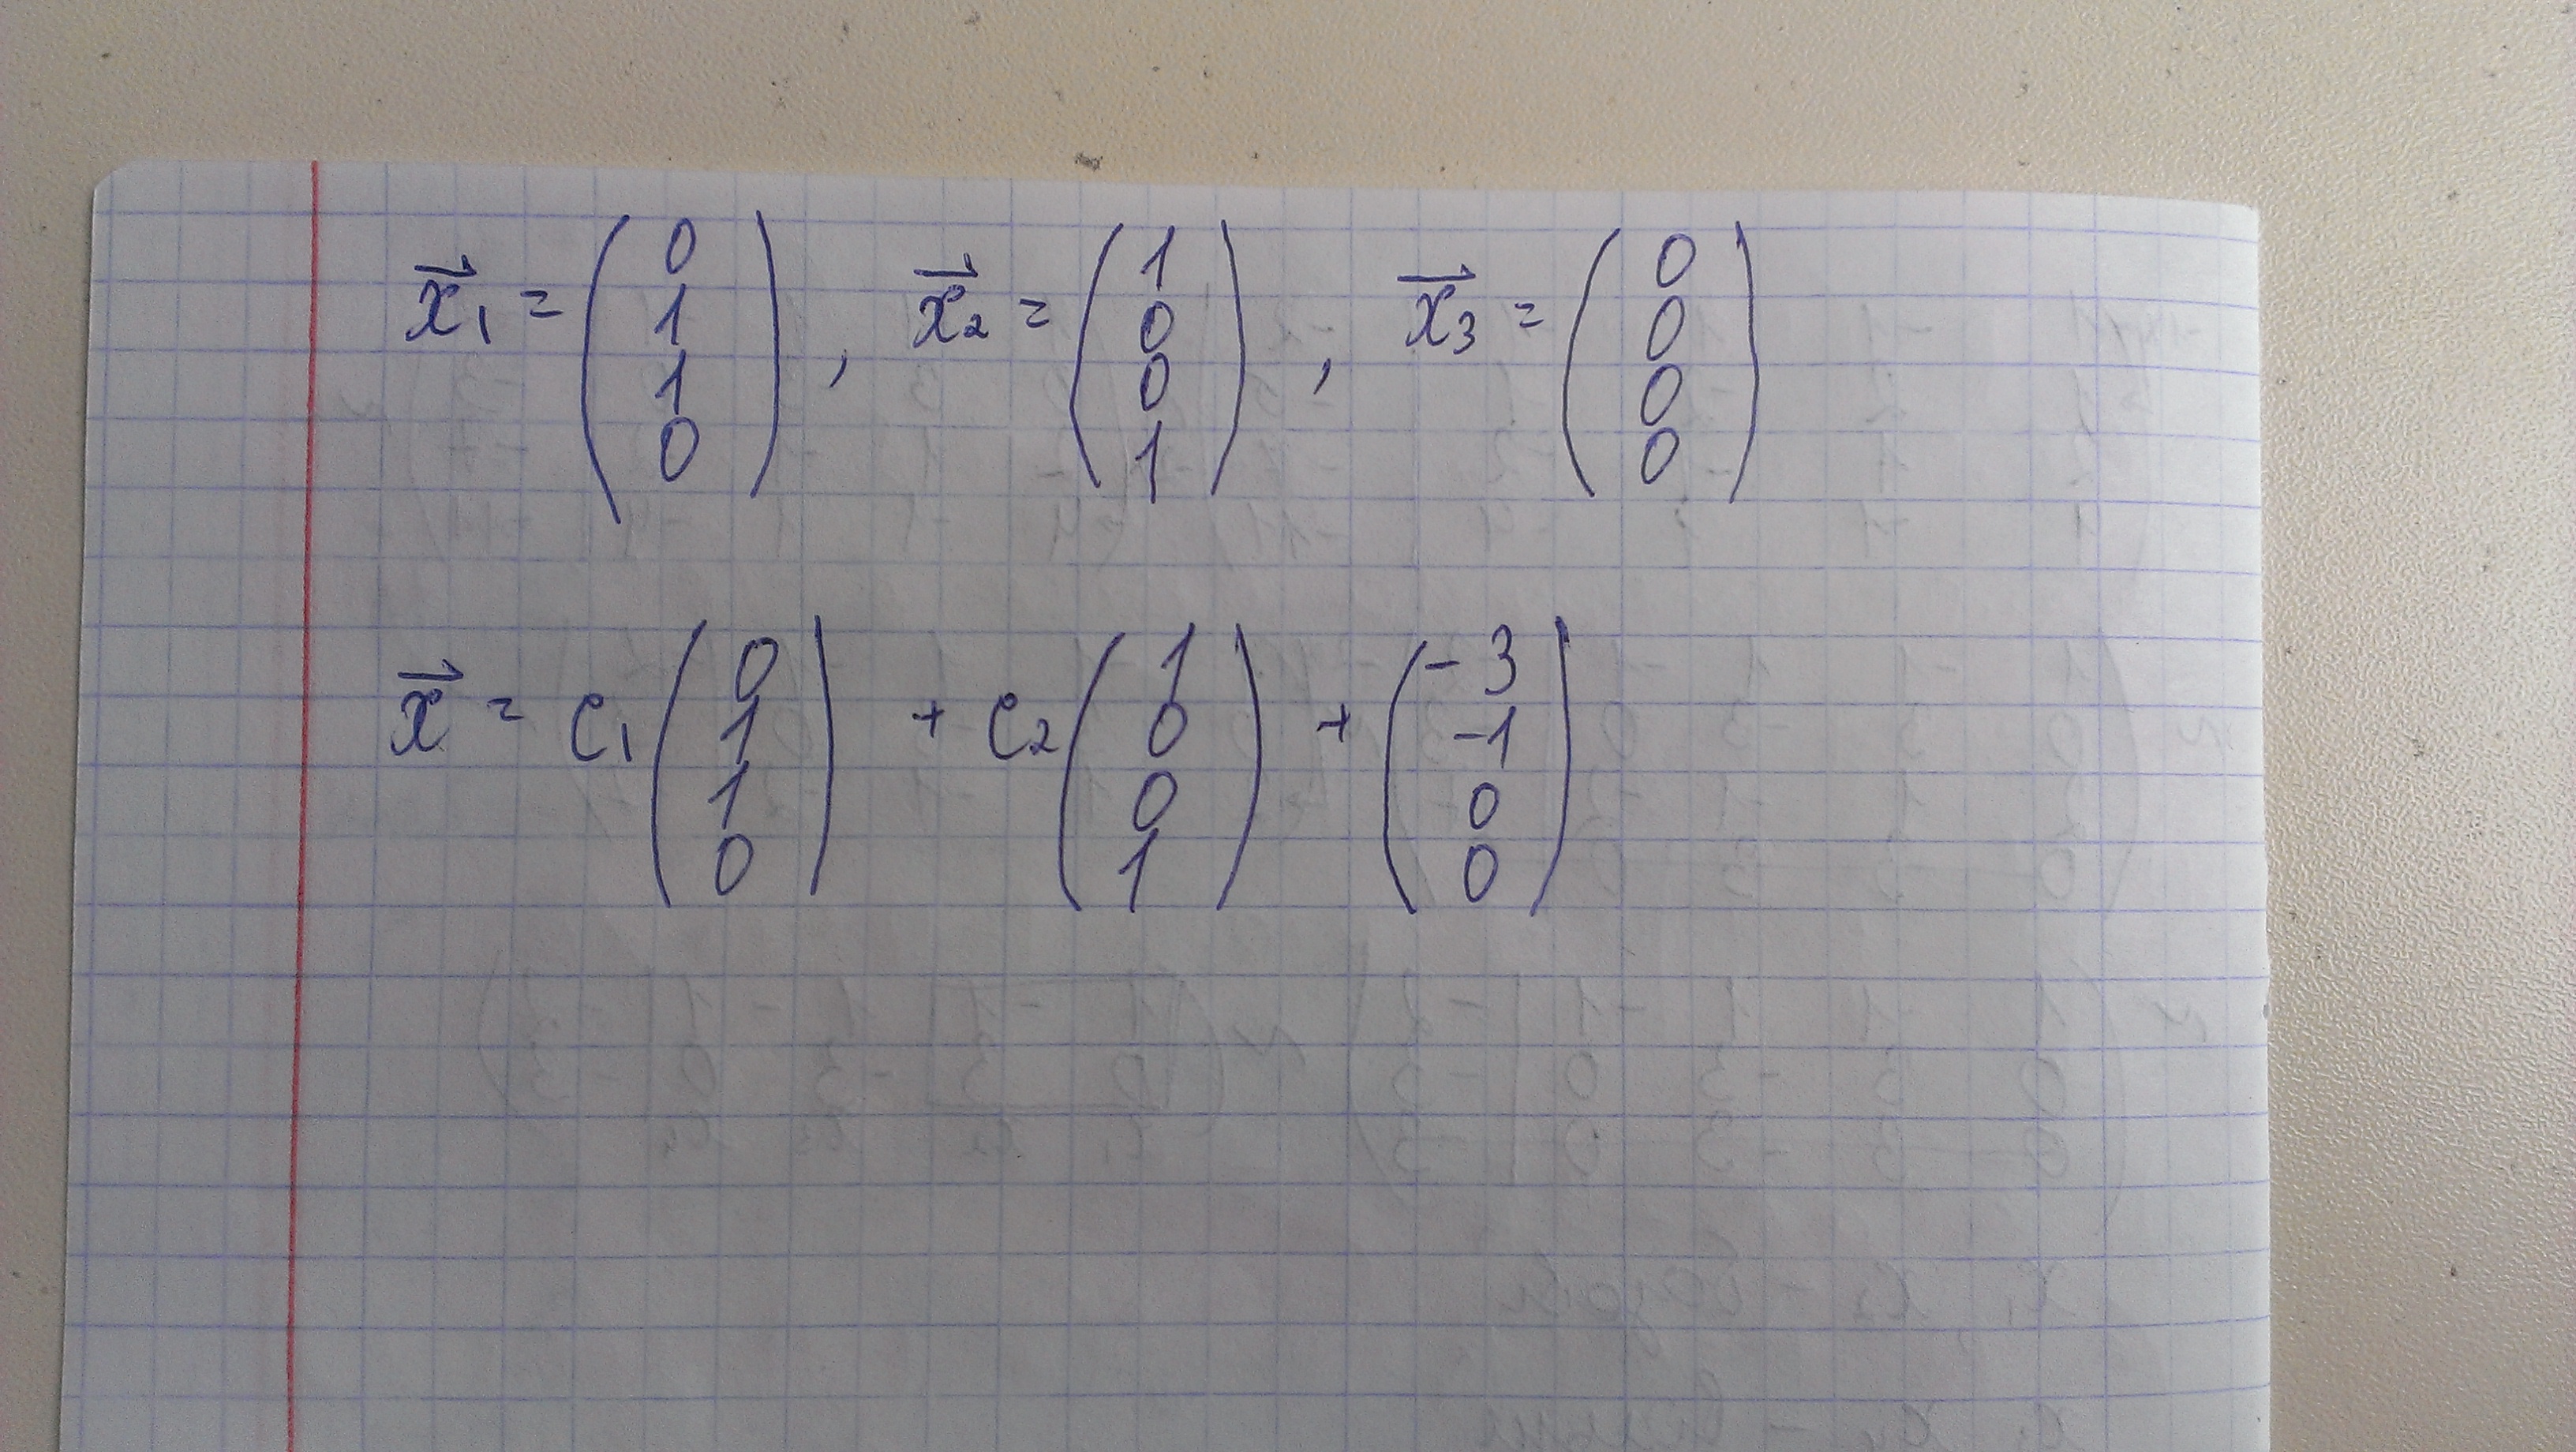 x⃗₁ = (0 1 1 0), x⃗₂ = (1 0 0 1), x⃗₃ = (0 0 0 0)
x⃗ = c₁ (0 1 1 0) + c₂ (1 0 0 1) + (-3 -1 0 0)